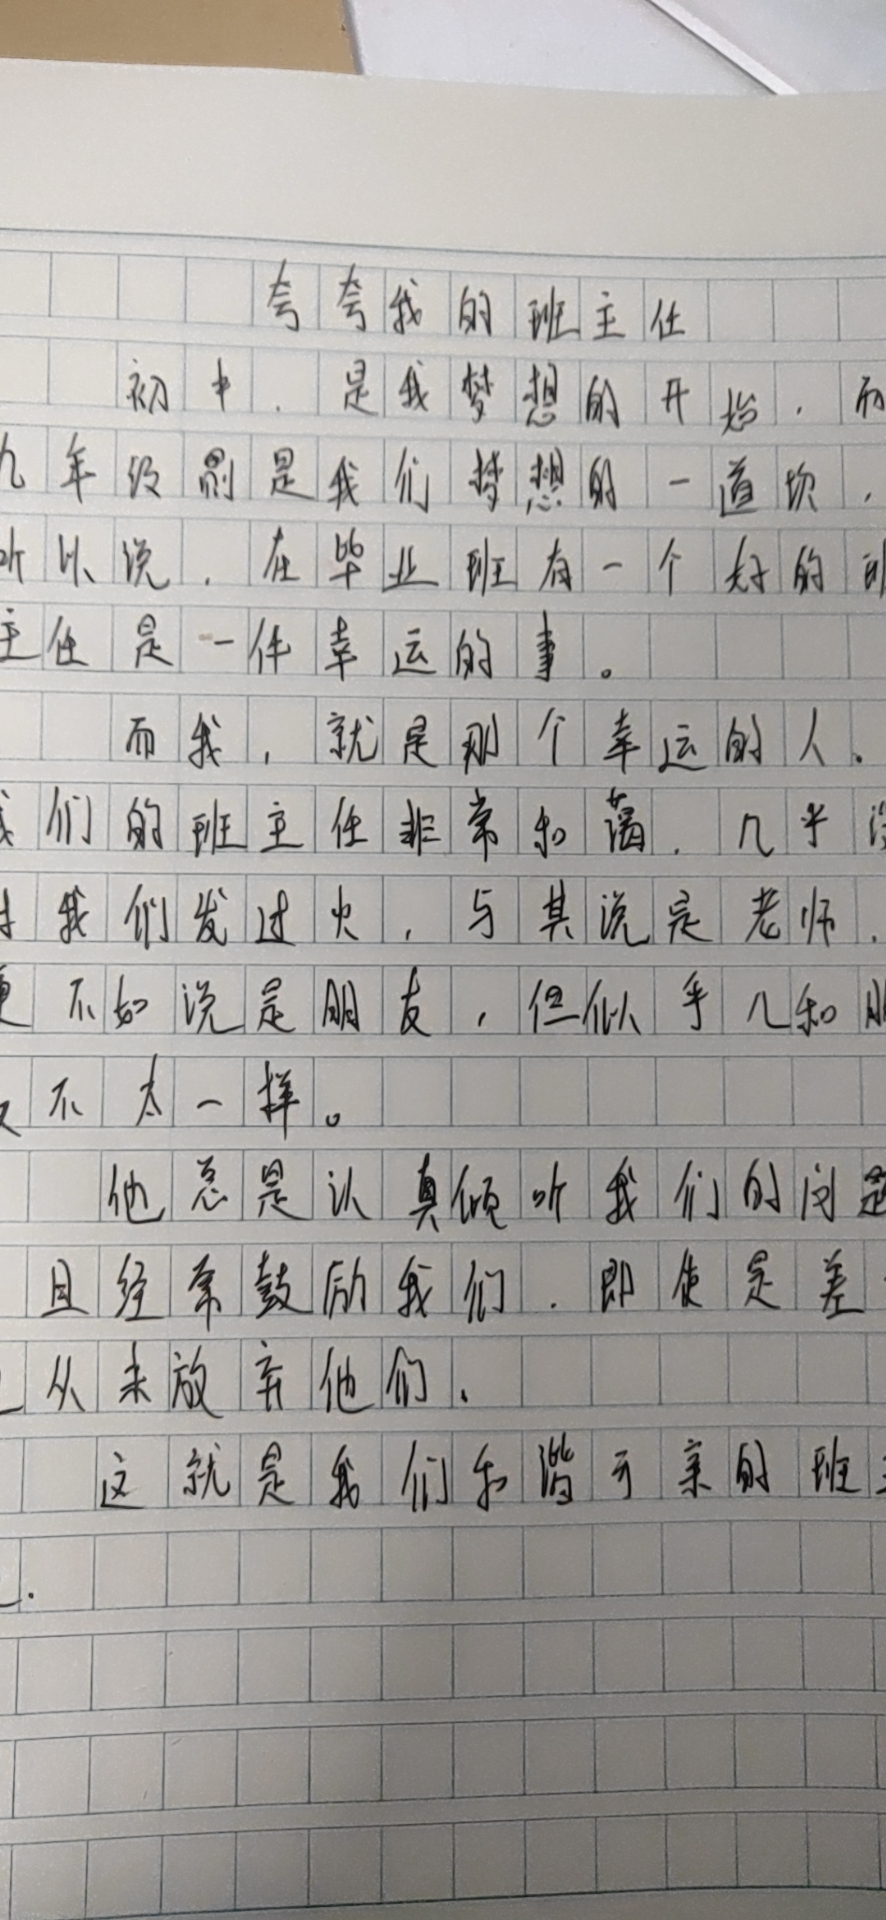 夸夸我的班主任
初中，是我梦想的开始，而
九年级则是我们梦想的一道坎，
所以说，在毕业班有一个好的班
主任是一件幸运的事。
而我，就是那个幸运的人。
我们的班主任非常和蔼，几乎没
对我们发过火，与其说是老师，
更不如说是朋友，但似乎几和朋
友不太一样。
他总是认真倾听我们的问题
且经常鼓励我们，即使是差
从未放弃他们.
这就是我们和谐可亲的班主